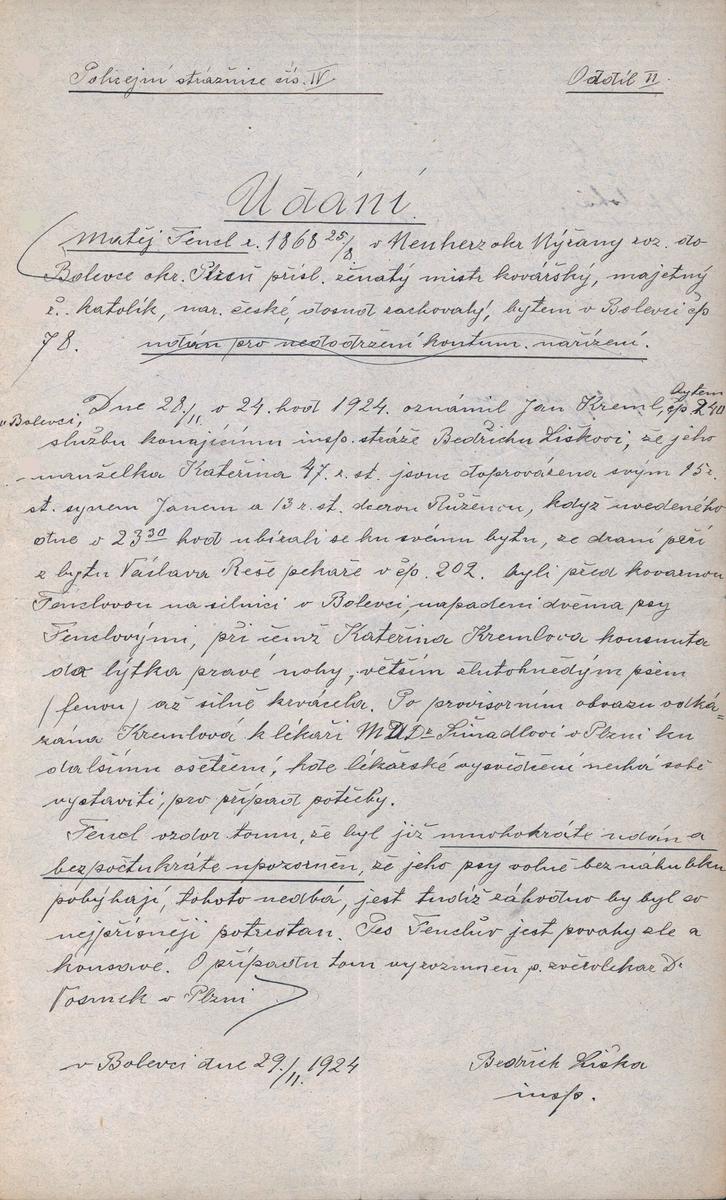 Policejní strážnice čís. IV
Oddíl II.
Udání.
Matěj Fencl r. 1868 25/8 v Neuherz okr Nýřany roz. do
Bolevce okr. Plzeň přísl. ženatý mistr kovářský, majetný
ř. katolík, nar. české, dosud zachovalý, bytem v Bolevci čp
78. udán pro nedodržení kontum. nařízení.
Dne 28./II v 24. hod 1924. oznámil Jan Kreml, bytem
v Bolevci, čp. 240
službu konajícímu insp. stráže Bedřichu Liškovi, že jeho
manželka Kateřina 47. r. st. jsouc doprovázena svým 15 r.
st. synem Janem a 13 r. st. dcerou Růženou, když uvedeného
dne v 23 30 hod ubírali se ku svému bytu, ze draní peří
z bytu Václava Reše pekaře v čp. 202. byli před kovárnou
Fenclovou na silnici v Bolevci, napadeni dvěma psy
Fenclovými, při čemž Kateřina Kremlova kousnuta
do lýtka pravé nohy, větším žlutohnědým psem
(fenou) až silně krvácela. Po provisorním obvazu odká=
zána Kremlová k lékaři MUDr v Plzni ku
dalšímu ošetření, kde lékařské vysvědčení nechá sobě
vystaviti, pro případ potřeby.
Fencl vzdor tomu, že byl již mnohokráte udán a
bezpočtukráte upozorněn, že jeho psy volně bez náhubku
pobýhají, tohoto nedbá, jest tudíž záhodno by byl co
nejpřísněji potrestán. Pes Fenclův jest povahy zle a
kousavé. O případu tom vyrozuměn p. zvěrolékař Dr
Vosmek v Plzni
v Bolevci dne 29./II. 1924
Bedřich Liška
insp.